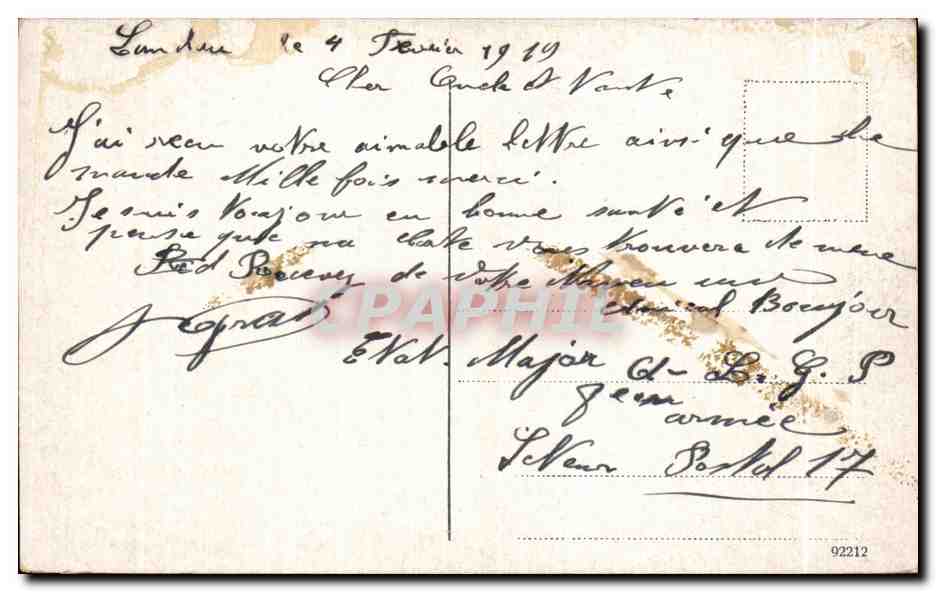 Landau le 4 Fevrier 1919
Cher Oncle et Tante
J'ai recu votre aimable lettre ainsi que le
mande Mille fois merci.
Je suis toujour en bonne santé et
pense que ma carte vous trouvera de meme
Recevez de votre Neveu un
amical Boujour
CPAPHIL
Etat. Major d- L. G. P
8eme armée
Secteur Postal 17
92212